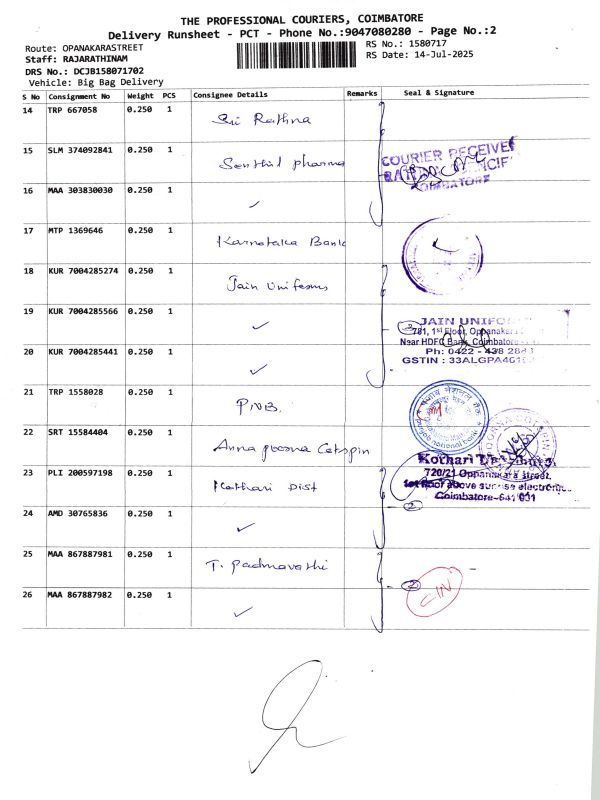 THE PROFESSIONAL COURIERS, COIMBATORE
Delivery Runsheet - PCT - Phone No.:9047080280 - Page No.:2
Route: OPANAKARASTREET
RS No.: 1580717
Staff: RAJARATHINAM
RS Date: 14-Jul-2025
DRS No.: DCJB158071702
Vehicle: Big Bag Delivery
S No Consignment No Weight PCS Consignee Details Remarks Seal & Signature
14 TRP 667058 0.250 1 Sri Rathna
15 SLM 374092841 0.250 1 Senthil pharma
COURIER RECEIVE
COIMBATORE
16 MAA 303830030 0.250 1 ✓
17 MTP 1369646 0.250 1 Karnataka Bank
18 KUR 7004285274 0.250 1 Jain Uniforms
19 KUR 7004285566 0.250 1 ✓
JAIN UNIFO
781, 1st Floor, Oppanakara
Near HDFC Bank, Coimbatore
20 KUR 7004285441 0.250 1 ✓
Ph: 0422 - 438
GSTIN : 33ALGPA
21 TRP 1558028 0.250 1 PNB.
punjab national bank
22 SRT 15584404 0.250 1 Annapoorna
Kothari
23 PLI 200597198 0.250 1 Kothari Dist
720/21 Oppanakara street,
1st floor above sunrise electronic
Coimbatore-641 001
24 AMD 30765836 0.250 1 ✓ 2
25 MAA 867887981 0.250 1 T. Padmavathi
2
26 MAA 867887982 0.250 1 ✓